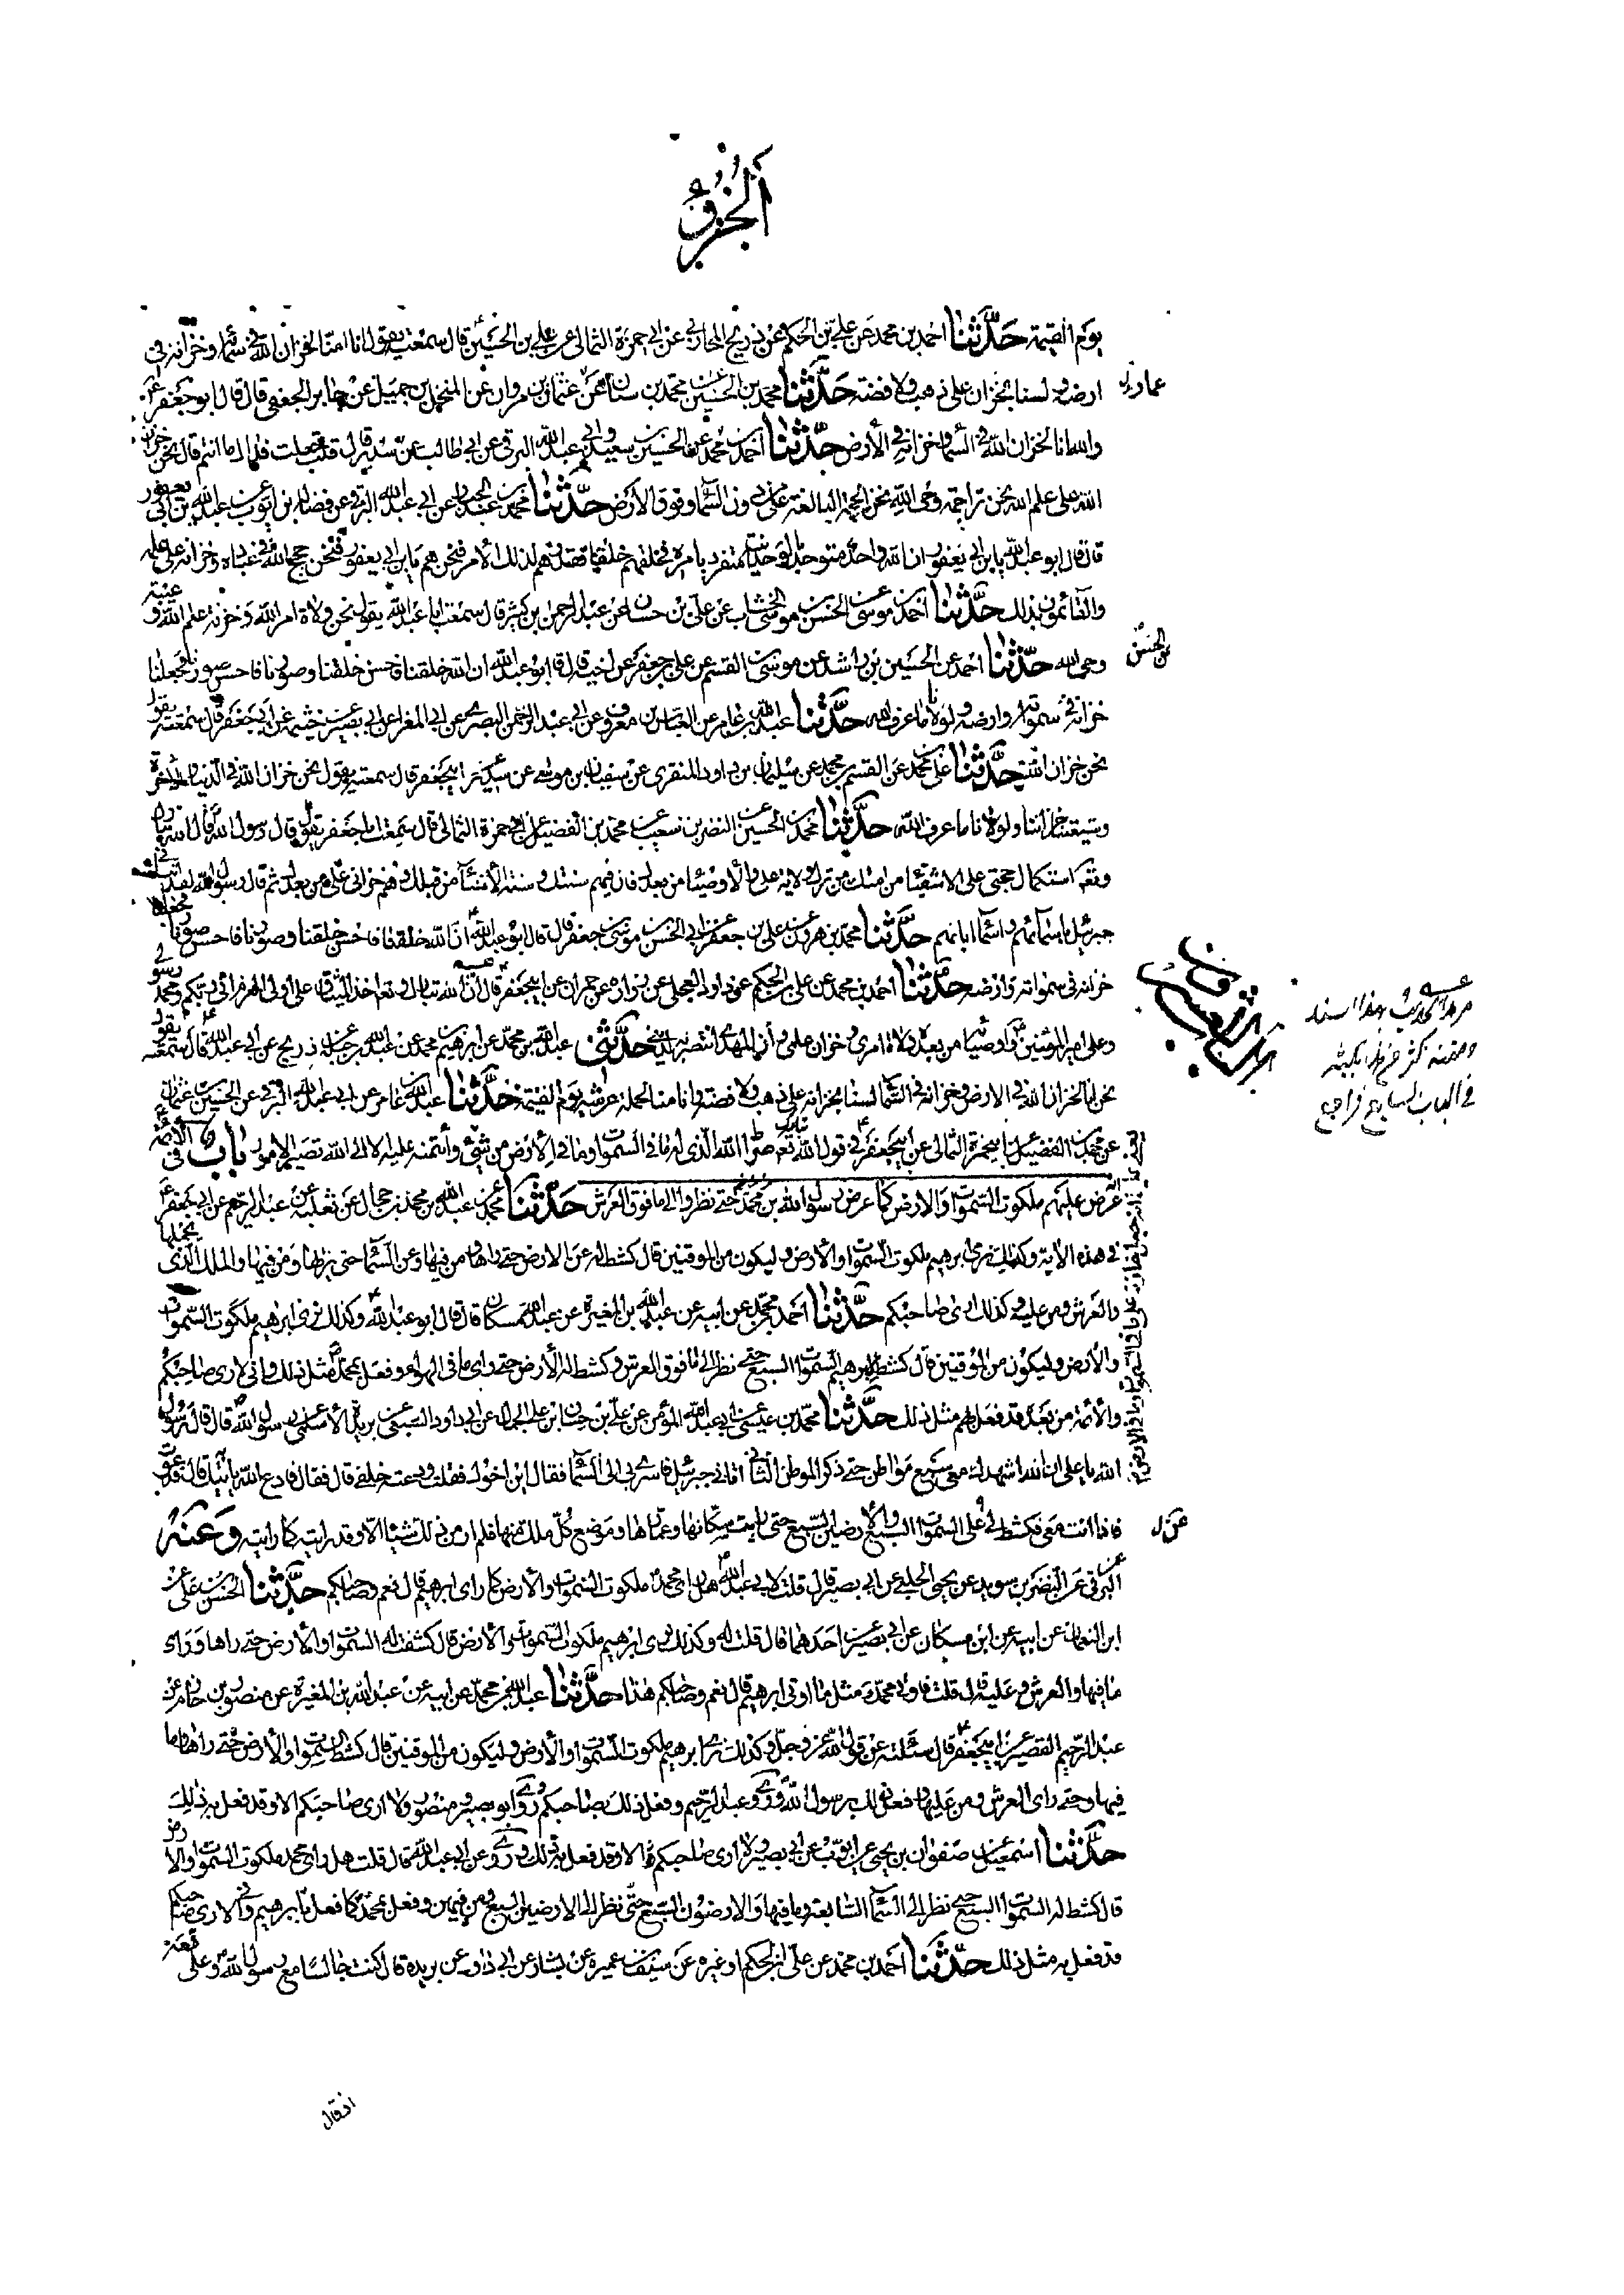 الجزؤ
يوم القيمة حدثنا احمد بن محمد عن علي بن الحكم عن ذريح المحاربي عن ابي حمزة الثمالي عن علي بن الحسين قال سمعته يقول ان منا لخزان الله في سمائه وخزانه في
ارضه ولسنا بخزان على ذهب ولا فضة حدثنا محمد بن الحسين عن محمد بن سنان عن عثمان بن مروان عن المنخل بن جميل عن جابر الجعفي قال قال ابو جعفر
والله انا لخزان الله في السماء وخزانه في الأرض حدثنا احمد بن محمد عن الحسين بن سعيد وابي عبد الله البرقي عن ابي طالب عن سدير قال قلت جعلت فداك ما انتم قال نحن خزان
الله على علم الله نحن تراجمة وحي الله نحن الحجة البالغة على من دون السماء وفوق الأرض حدثنا محمد بن عبد الجبار عن ابي عبد الله البرقي عن فضالة بن ايوب عن عبد الله بن ابي يعفور
قال قال ابو عبد الله يابن ابي يعفور ان الله واحد متوحد بالوحدانية متفرد بامره فخلق خلقا فقدرهم لذلك الأمر فنحن هم يابن ابي يعفور فنحن حجج الله في عباده وخزانه على علمه
والقائمون بذلك حدثنا احمد بن موسى عن الحسن بن موسى الخشاب عن علي بن حسان عن عبد الرحمن بن كثير قال سمعت ابا عبد الله يقول نحن ولاة امر الله وخزنة علم الله وعيبة
وحي الله حدثنا احمد عن الحسين بن راشد عن موسى بن القسم عن علي بن جعفر عن اخيه قال قال ابو عبد الله ان الله خلقنا فاحسن خلقنا وصورنا فاحسن صورنا فجعلنا
خزانه في سمواته وارضه ولولانا ما عرف الله حدثنا عبد الله بن عامر عن العباس بن معروف عن ابي عبد الرحمن البصري عن ابي المغرا عن ابي بصير عن خيثمة عن ابي جعفر قال سمعته يقول
نحن خزان الله حدثنا علي بن محمد عن القسم بن محمد عن سليمان بن داود المنقري عن سفيان بن موسى عن سدير عن ابي جعفر قال سمعته يقول نحن خزان الله في الدنيا والاخرة
وشيعتنا خزاننا ولولانا ما عرف الله حدثنا محمد بن الحسين عن النضر بن شعيب عن محمد بن الفضيل عن ابي حمزة الثمالي قال سمعت ابا جعفر يقول قال رسول الله قال الله تبارك
وتعه استكمال حجتي على الاشقياء من امتك من ترك ولاية علي والأوصياء من بعدك فان فيهم سنتك وسنة الأنبياء من قبلك وهم خزاني على علمي من بعدك ثم قال رسول الله لقد انباني
جبرئيل باسمائهم واسماء ابائهم حدثنا محمد بن هرون عن علي بن جعفر عن ابي الحسن موسى بن جعفر قال قال ابو عبد الله ان الله خلقنا فاحسن خلقنا وصورنا فاحسن صورنا فجعلنا
خزانه في سمواته وارضه حدثنا احمد بن محمد عن علي بن الحكم عن داود العجلي عن زرارة عن حمران عن ابي جعفر قال ان الله تبارك وتعه اخذ الميثاق على اولي العزم اني ربكم ومحمد رسولي
وعلي امير المؤمنين واوصياءه من بعده ولاة امري وخزان علمي وان المهدي انتصر به لديني حدثني عبد الله بن محمد عن ابرهيم بن محمد عن عبد الله بن جبلة عن ذريح عن ابي عبد الله قال سمعته يقول
نحن انا لخزان الله في الارض وخزانه في السماء لسنا بخزانه على ذهب ولا فضة وانا منا لحملة عرشه يوم القيمة حدثنا عبد الله بن عامر عن ابي عبد الله البرقي عن الحسين بن عثمان
عن محمد بن الفضيل عن ابي حمزة الثمالي عن ابي جعفر في قول الله تبارك وتعه صراط الله الذي له ما في السموات وما في الأرض من شيء وأتمنه عليه الا الى الله تصير الامور باب في الأئمة
انه عرض عليهم ملكوت السموات والارض كما عرض لرسول الله بن محمد حتى نظروا الى ما فوق العرش حدثنا محمد بن عبد الله بن محمد بن حجال عن ثعلبة عن عبد الرحيم عن ابي جعفر
في هذه الاية وكذلك نري ابرهيم ملكوت السموات والأرض وليكون من الموقنين قال كشط له عن الارض حتى راها ومن فيها وعن السماء حتى راها ومن فيها والملك الذي يحملها
والعرش ومن عليه وكذلك اري صاحبكم حدثنا احمد بن محمد عن ابيه عن عبد الله بن المغيرة عن عبد الله بن مسكان قال قال ابو عبد الله وكذلك نري ابرهيم ملكوت السموات
والأرض وليكون من الموقنين قال كشط لابرهيم السموات السبع حتى نظر الى ما فوق العرش وكشط له الأرض حتى راى ما في الهواء وفعل بمحمد مثل ذلك واني لارى صاحبكم
والأئمة من بعده قد فعل بهم مثل ذلك حدثنا محمد بن عيسى عن ابي عبد الله المؤمن عن علي بن حسان عن ابن علي الجمال عن ابي داود السبيعي عن بريدة الأسلمي عن رسول الله قال قال رسول
الله يا علي ان الله اشهدك معي سبع مواطن حتى ذكر الموطن الثاني اتاني جبرئيل فاسرى بي الى السماء فقال اين اخوك فقلت ودعته خلفي قال فقال فادع الله ياتيك به قال فدعوت
فاذا انت معي فكشط لي عن السموات السبع والأرضين السبع حتى رايت سكانها وعمارها وموضع كل ملك منها فلم ار من ذلك شيئا الا وقد رايته كما رايته وعنه
عن البرقي عن النضر بن سويد عن يحيى الحلبي عن ابي بصير قال قلت لابي عبد الله هل راى محمد ملكوت السموات والأرض كما راى ابرهيم قال نعم وصاحبكم حدثنا الحسن بن علي عن
ابن النعمان عن ابيه عن ابن مسكان عن ابي بصير عن احدهما قال قلت له وكذلك نري ابرهيم ملكوت السموات والأرض قال كشف له السموات والأرض حتى راها وراى
ما فيها والعرش ومن عليه قال قلت فاوتي محمد مثل ما اوتي ابرهيم قال نعم وصاحبكم هذا حدثنا عبد الله بن محمد عن ابيه عن عبد الله بن المغيرة عن منصور بن حازم عن
عبد الرحيم القصير عن ابي جعفر قال سئلته عن قول الله عز وجل وكذلك نري ابرهيم ملكوت السموات والأرض وليكون من الموقنين قال كشط له السموات والأرض حتى راها وما
فيها وحتى راى العرش ومن عليها وفعل ذلك برسول الله وروى عبد الرحيم وفعل ذلك بصاحبكم وروى ابو بصير ومنصور ولا ارى صاحبكم الا وقد فعل به ذلك
حدثنا اسمعيل عن صفوان بن يحيى عن ابي ايوب عن ابي بصير ولا ارى صاحبكم الا وقد فعل به ذلك وروى عن ابي عبد الله قال قلت هل راى محمد ملكوت السموات والارض
قال كشط له السموات السبع حتى نظر الى السماء السابعة وما فيها والارضون السبع حتى نظر الى الارضين السبع ومن فيهن وفعل بمحمد كما فعل بابرهيم واني لارى صاحبكم
قد فعل به مثل ذلك حدثنا احمد بن محمد عن علي بن الحكم او غيره عن سيف بن عميرة عن بشار عن ابي داود عن بريدة قال كنت جالسا مع رسول الله وعلي معه
عمار
بن الحسن
عن
مر هذا الحديث بهذا السند
ومتنه
في الباب السابع فراجع
الباب العشرون
اذ قال